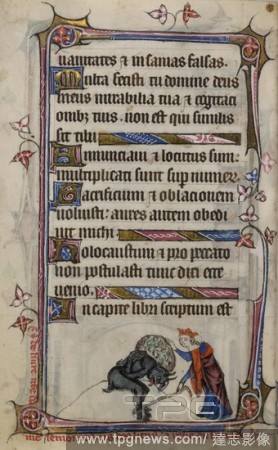 uanitates & insanias falsas.
Multa fecisti tu domine deus
meus mirabilia tua & cogitaci
onibȝ tuis. non est qui similis
sit tibi
Annunciaui & locutus sum:
multiplicati sunt sup numer
Sacrificium & oblacionem
noluisti: aures autem obedi
ut michi
Holocaustum & pro peccato
non postulasti tunc dixi ecce
uenio.
In capite libri scriptum est
TPG
www.tpgnews.com/ 達志影像